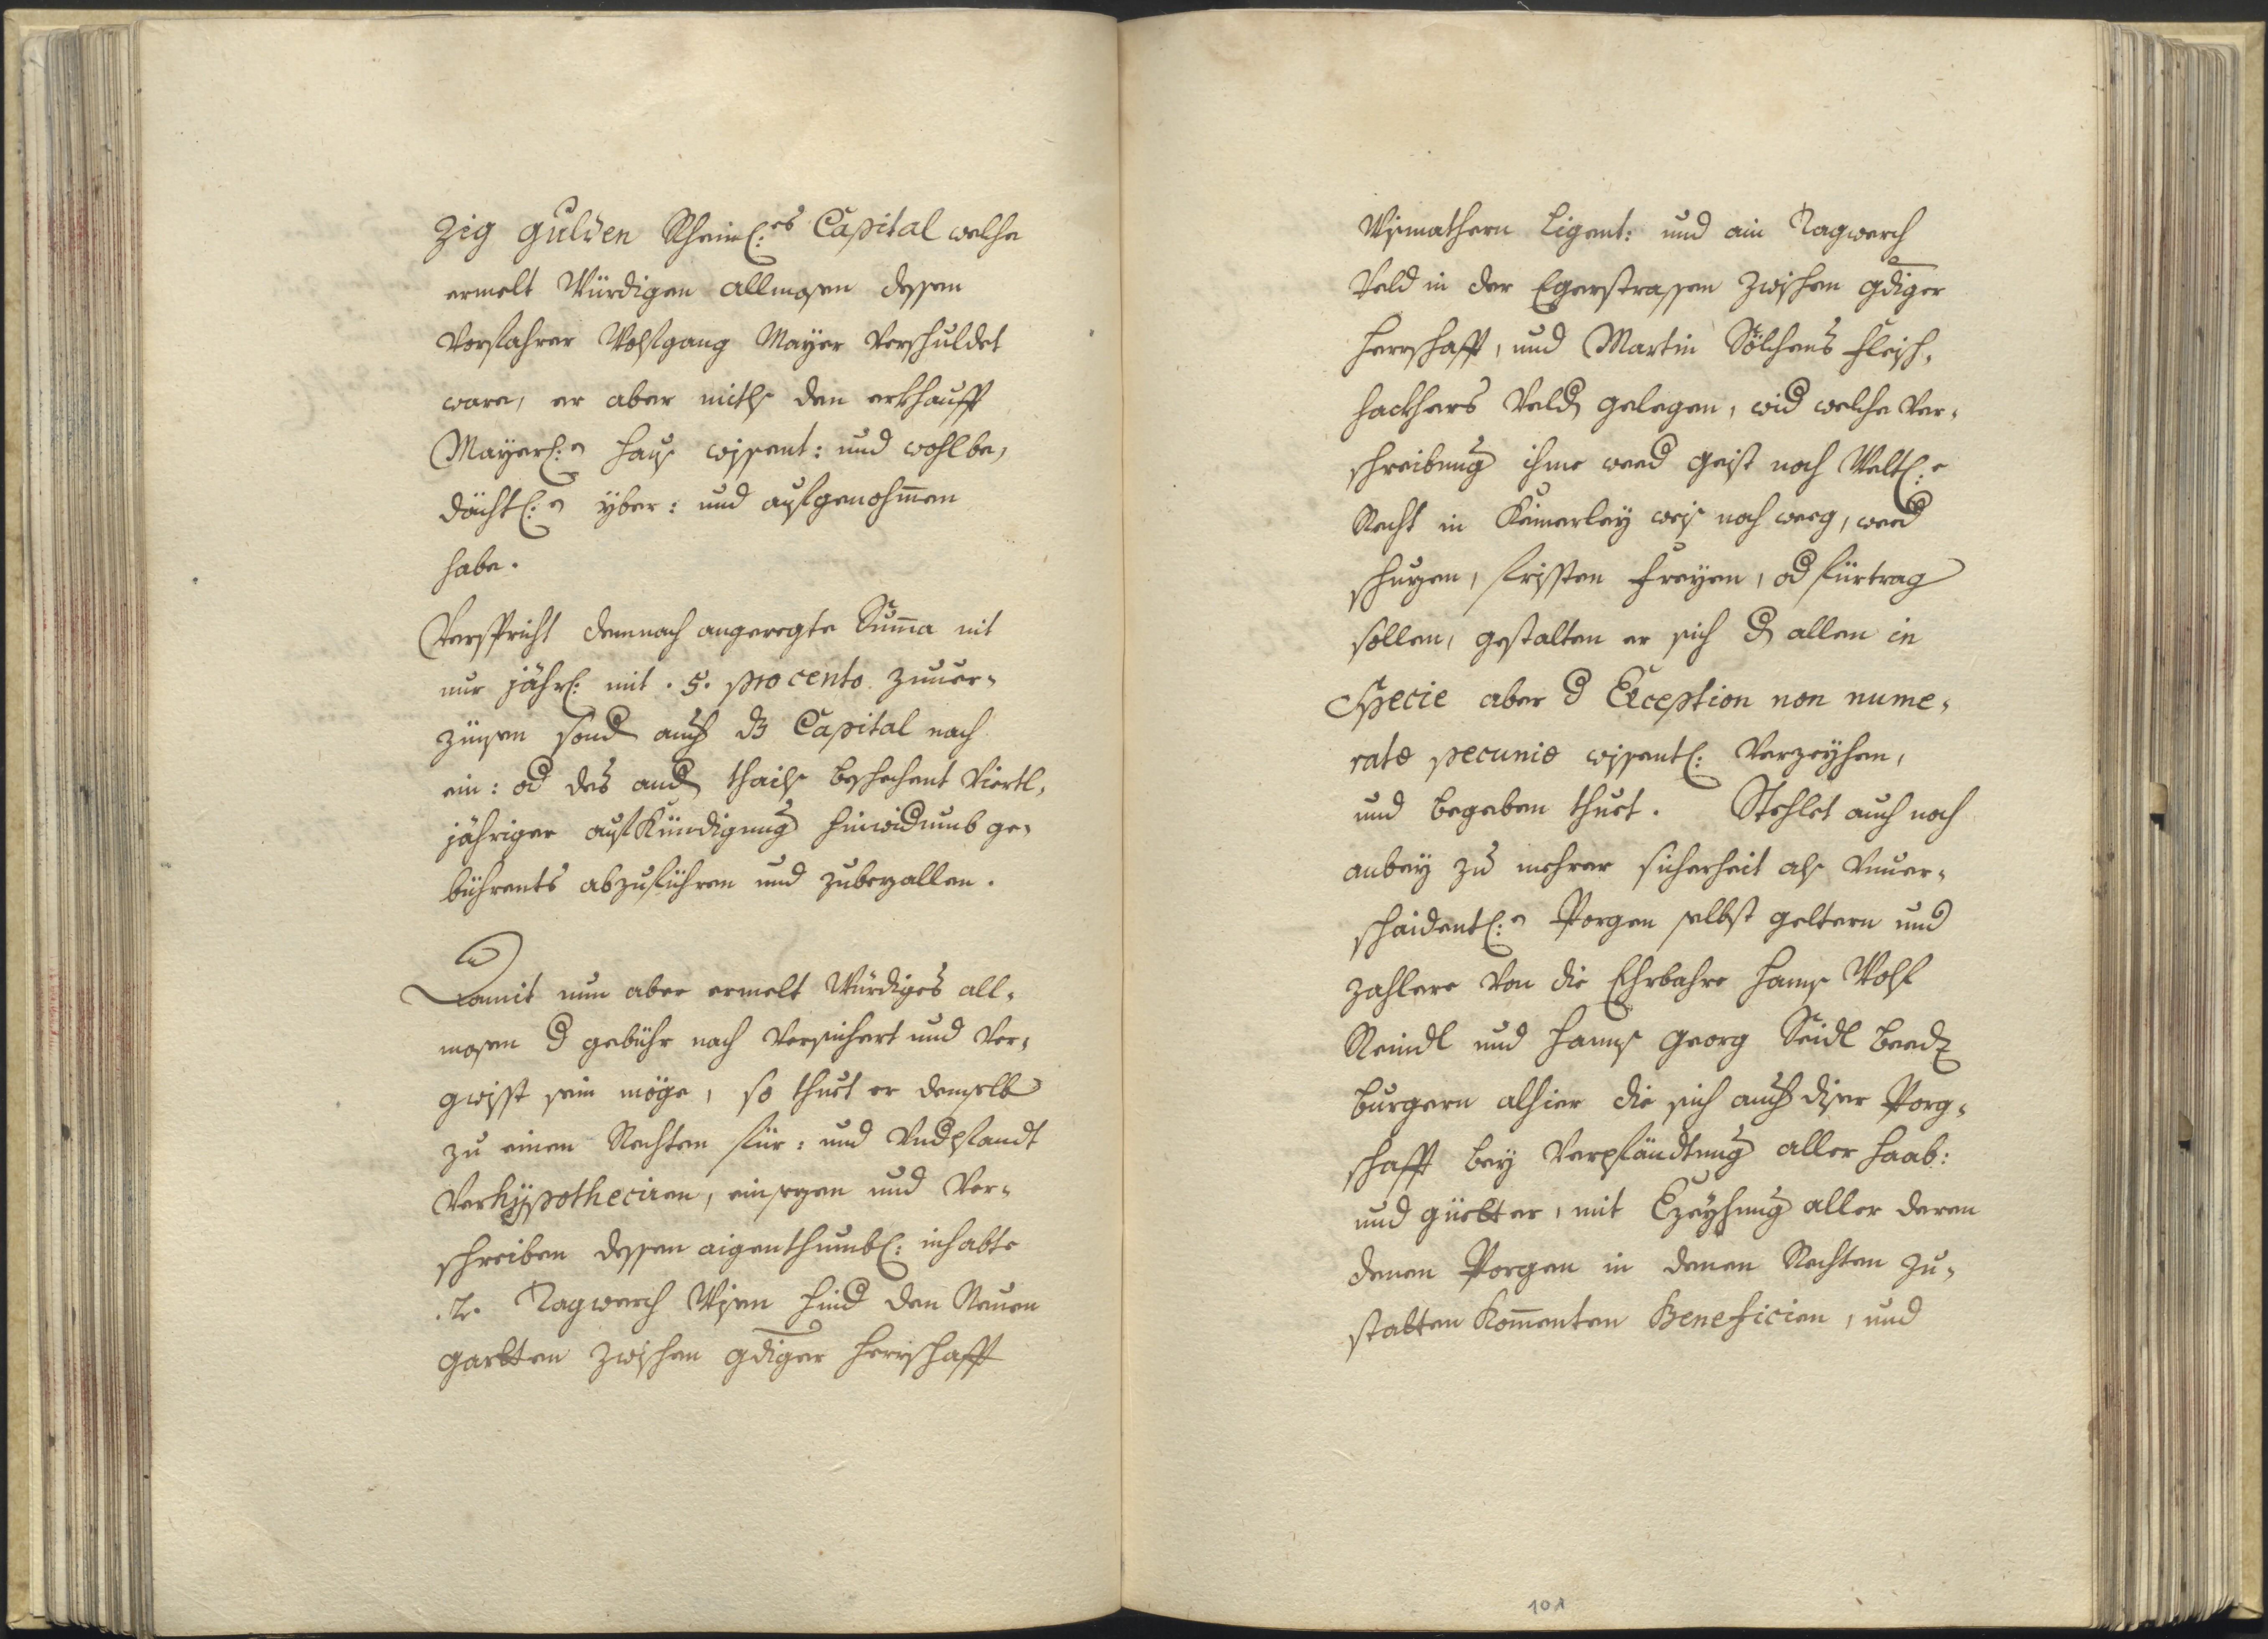 zig gulden Rheinl:es Capital welche
ermelt Würdigen allmosen dessen
Vorfahrer Wolfgang Mayer verschuldet
ware, er aber mitls den erkhaufft
Mayerl:n haus wissent: und wohlbe„
dächtl:n yber: und aufgenohmen
habe.
Verspricht demnach angeregte Suma nit
nur jährl: mit .5. pro cento zuuer„
zinsen sond auch dz Capital nach
ein: od des and thails beschechent viertl„
jähriger aufkündigung hinwidumb ge„
bührents abzuführen und zubezallen.
Damit nun aber ermelt Würdiges all„
mosen d gebühr nach versichert und ver„
gwisst sein möge, so thuet er demselb
zu einem Rechten für: und Undpfandt
verhÿpotheciren, einsezen und ver„
schreiben dessen aigenthumbl: inhabte
.2. Tagwerch Wisen hind den Neuen
gartten zwischen gdiger herrschafft
Wismathern ligent: und ain Tagwerch
Veld in der Egerstrassen zwischen gdiger
herrschafft, und Martin Sölchens fleisch„
hackhers Veld gelegen, wid welche ver„
schreibung ihme weed geist noch Weltl:e
Recht in keinerley weis noch weeg, weed
schuzen, fristen freyen, od fürtrag
sollen, gestalten er sich d allen in
specie aber d Exception non nume„
ratæ pecuniæ wissentl: verzeyhen,
und begeben thuet. Stehlet auch noch
anbey zu mehrer sicherheit als vnuer„
schaidentl:n Porgen selbst geltern und
zahlere von die Ehrbahre hanns Wolf
Reindl und hanns Georg Seidl beede
burgern alhier die sich auch diser Porg„
schafft bey verpfändtung aller haab:
und güetter, mit Ezeyhung aller deren
denen Porgen in denen Rechten zu„
statten komenten Beneficien, und
101